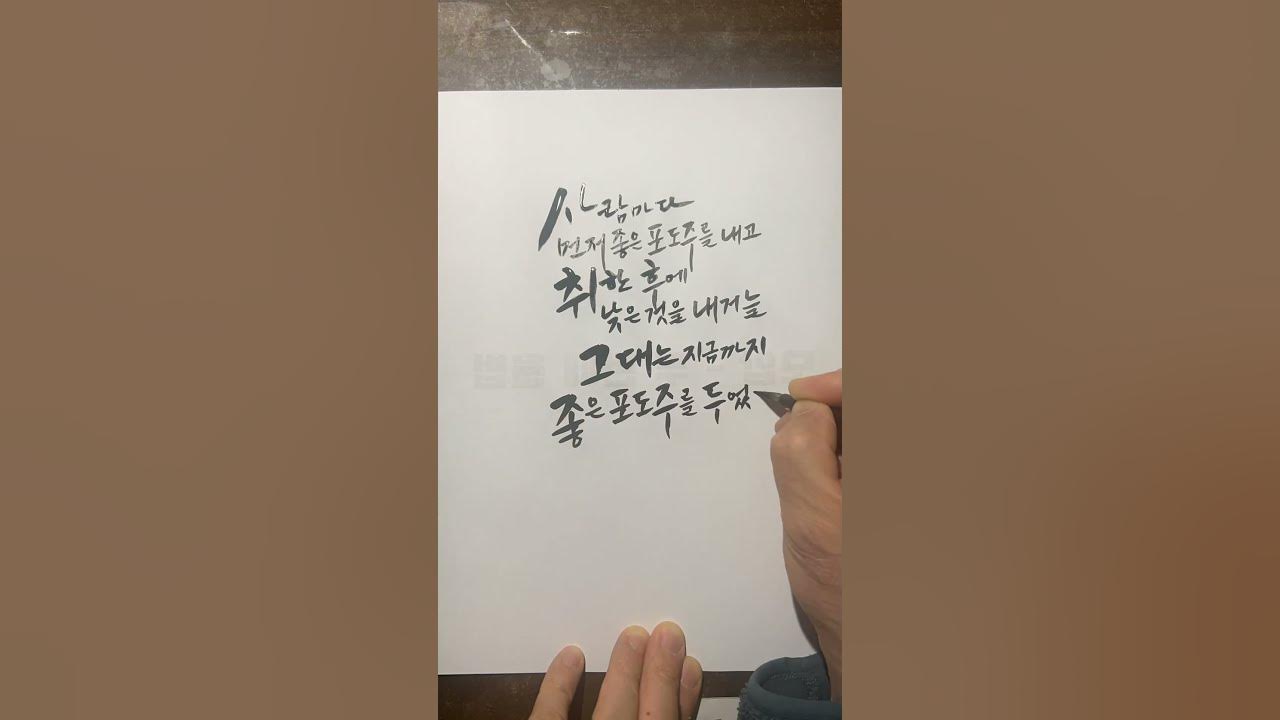 사람마다
먼저 좋은 포도주를 내고
취한 후에
낮은 것을 내거늘
그대는 지금까지
좋은 포도주를 두었